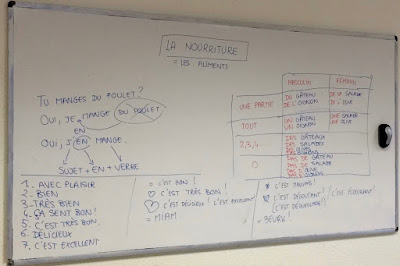 LA NOURRITURE
= LES ALIMENTS
TU MANGES DU POULET?
OUI, JE MANGE DU POULET
EN
OUI, J'EN MANGE.
SUJET + EN + VERBE
MASCULIN FÉMININ
UNE PARTIE DU GÂTEAU DE LA SALADE
DE L'OIGNON DE L'OLIVE
TOUT UN GÂTEAU UNE SALADE
UN OIGNON UNE OLIVE
2,3,4.. DES GÂTEAUX
DES SALADES
DES
DES OLIVES
0 PAS DE GÂTEAU
PAS DE SALADE
PAS D'
PAS D'OLIVE
1. AVEC PLAISIR
2. BIEN
3. TRÈS BIEN
4. ÇA SENT BON!
5. C'EST TRÈS BON.
6. DÉLICIEUX
7. C'EST EXCELLENT
= C'EST BON!
C'EST TRÈS BON!
C'EST DÉLICIEUX! C'EST EXCELLENT
= MIAM
C'EST MAUVAIS!
C'EST DÉGOÛTANT! / C'EST ÉCOEURANT!
= BEURK!